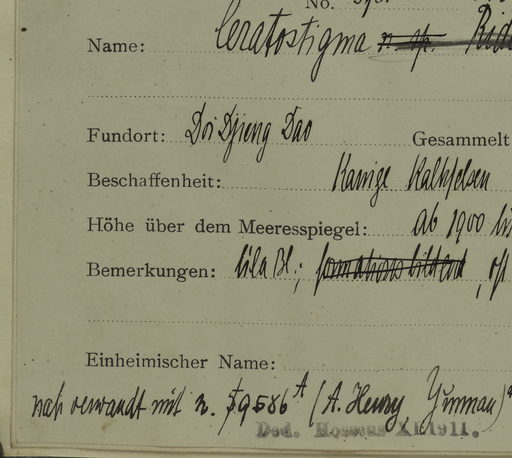 No.
Name: Ceratostigma n. sp.
Fundort: Doi Djieng Dao Gesammelt
Beschaffenheit: Kantige Kalkfelsen
Höhe über dem Meeresspiegel: ab 1900
Bemerkungen: lila Bl.; formationsbildend, oft
Einheimischer Name:
nah verwandt mit n. 9586 A (A. Henry, Yunnan)
Ded. Hosseus XI 1911.